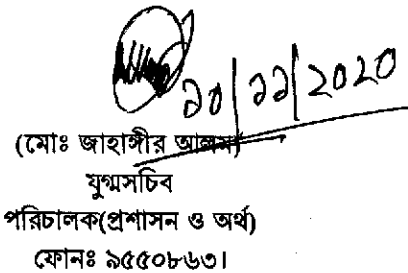 ১০/১১/2020
(মোঃ জাহাঙ্গীর আলম)
যুগ্মসচিব
পরিচালক(প্রশাসন ও অর্থ)
ফোনঃ ৯৫৫০৮৬৩।